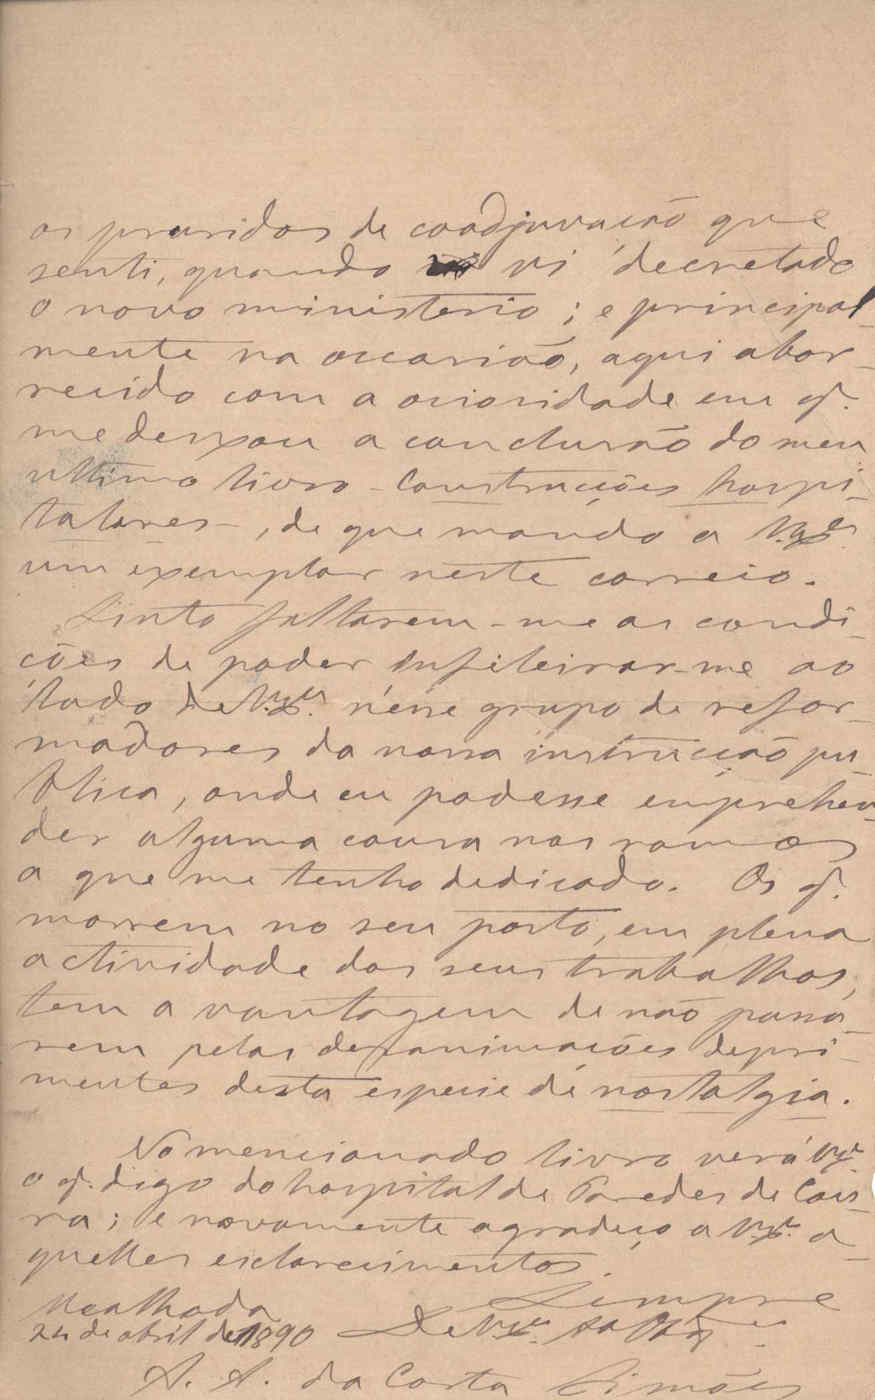 os pruridos de coadjuvação que
senti, quando vi decretado
o novo ministerio; e principal
mente na occasião, aqui abor-
recido com a ociosidade em q.
me deixou a conclusão do meu
ultimo livro - Construcções hospi-
talares -, de que mando a V. Exª
um exemplar neste correio.
Sinto faltarem-me as condi-
ções de poder enfileirar-me ao
lado de V. Exª n'esse grupo de refor-
madores da nossa instrucção pu-
blica, onde eu podesse emprehen-
der alguma cousa nos ramos
a que me tenho dedicado. Os q.
morrem no seu posto, em plena
actividade dos seus trabalhos,
tem a vantagem de não passa-
rem pelas desanimações depri-
mentes desta especie de nostalgia.
No mencionado livro verá V. Exª
o q. digo do hospital de Paredes de Cou-
ra; e novamente agradeço a V. Exª a-
quelles esclarecimentos.
Sempre
Mealhada
24 de abril de 1890 De V. Exª
A. A. da Costa Simões